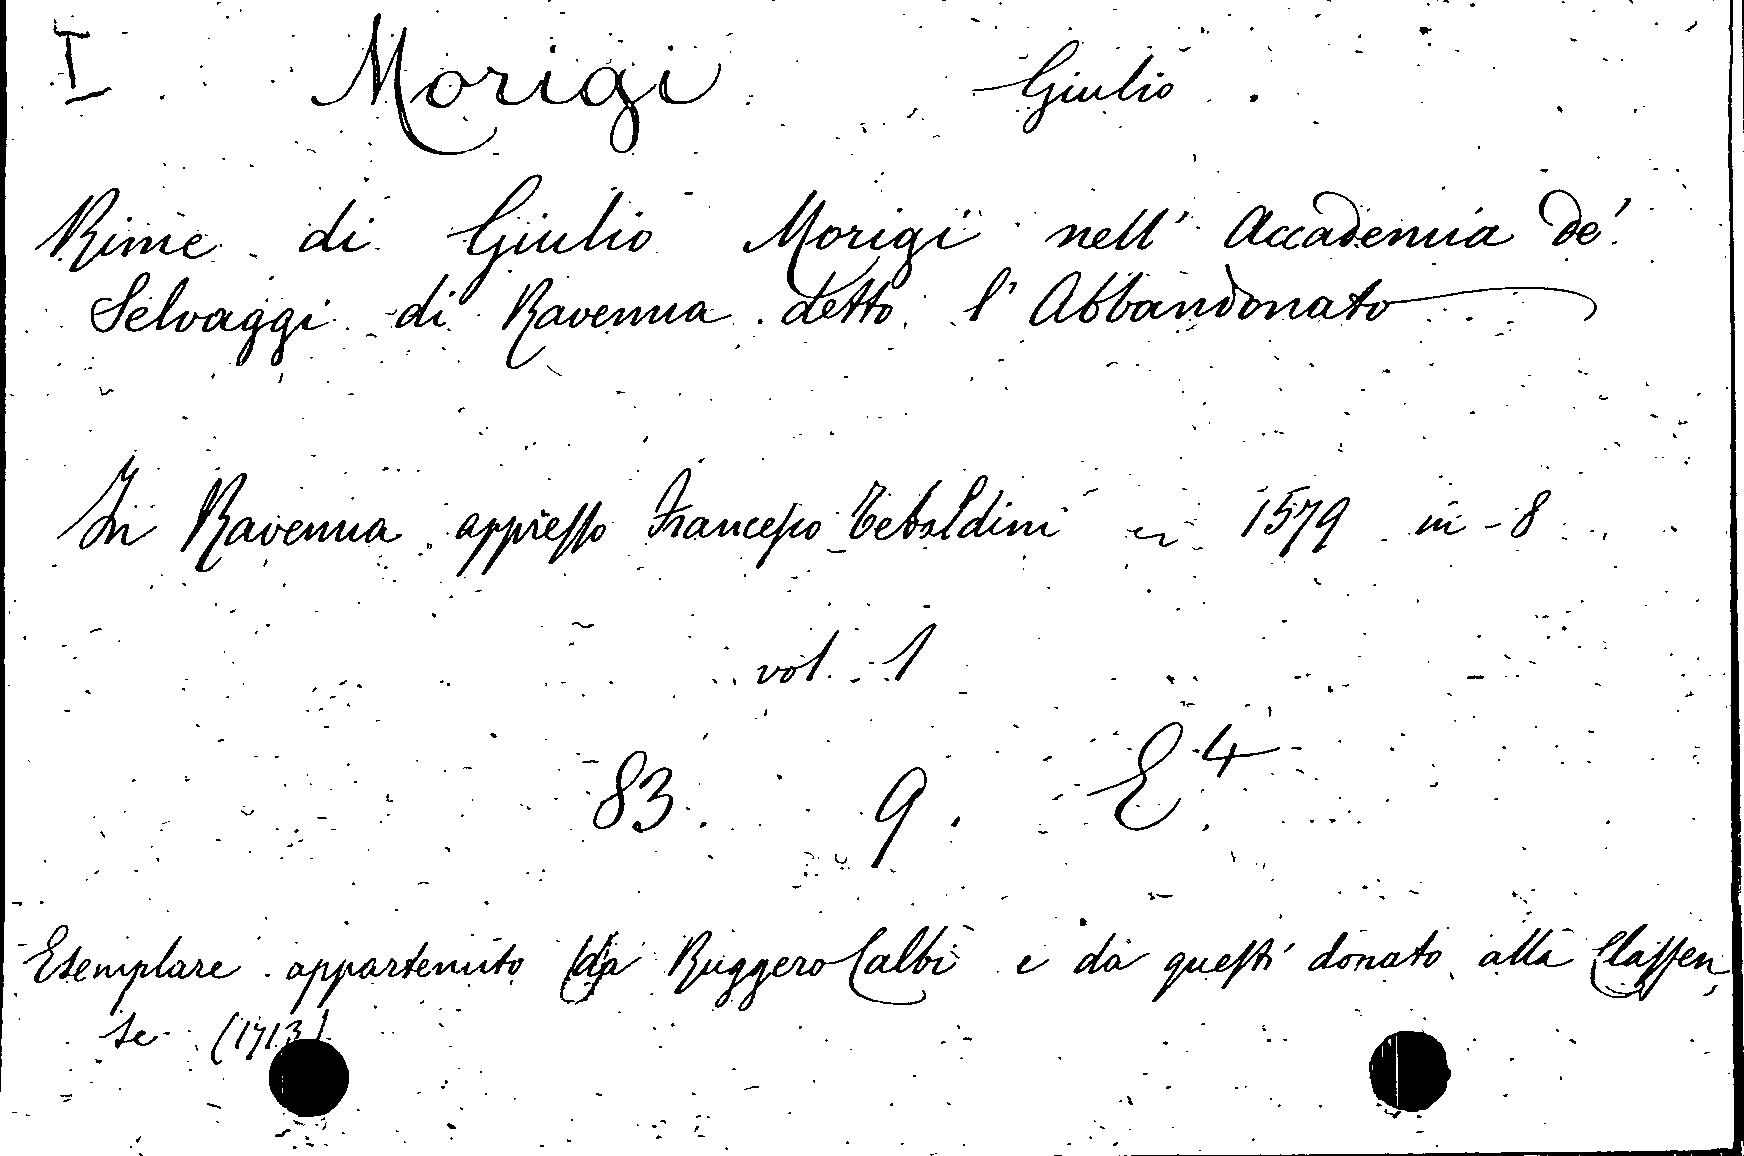 I Morigi Giulio
Rime di Giulio Morigi nell' Accademia de'
Selvaggi di Ravenna detto l'Abbandonato
In Ravenna appresso Francesco Tebaldini 1579 in-8
vol. 1
83. 9. E4
Esemplare appartenuto da Ruggero Calbi e da questi donato alla Classen
se (1713)